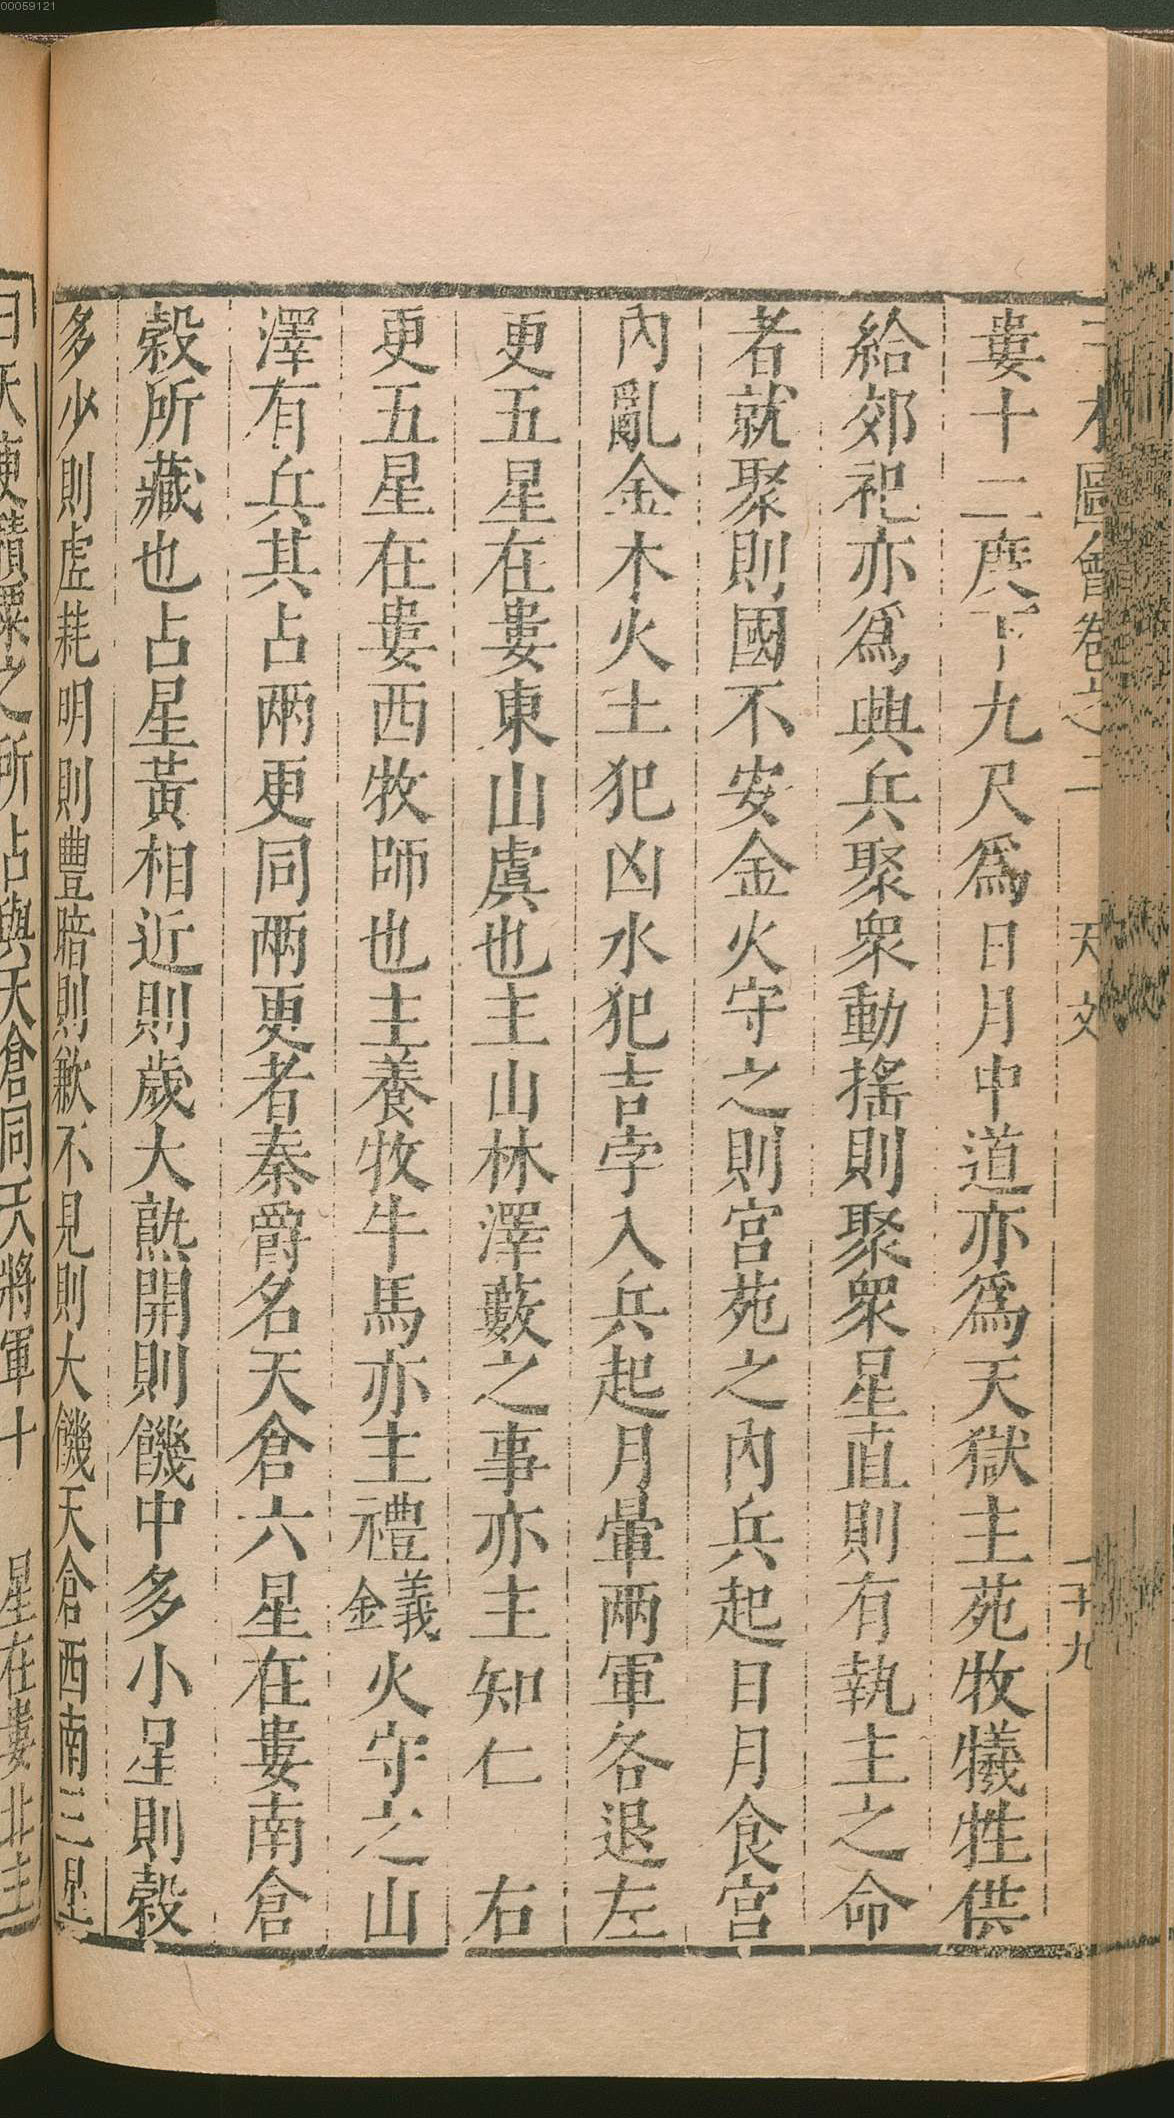 00059121
圖會卷之二 天文 二十九
婁十二度下九尺爲日月中道亦爲天獄主苑牧犧牲供
給郊祀亦爲興兵聚衆動搖則聚衆星直則有執主之命
者就聚則國不安金火守之則宮苑之內兵起日月食宮
內亂金木火土犯凶水犯吉孛入兵起月暈兩軍各退左
更五星在婁東山虞也主山林澤藪之事亦主知仁 右
更五星在婁西牧師也主養牧牛馬亦主禮義金火守之山
澤有兵其占兩更同兩更者秦爵名天倉六星在婁南倉
穀所藏也占星黃相近則歲大熟開則饑中多小星則穀
多少則虛耗明則豐暗則歉不見則大饑天倉西南三星
曰天庾積粟之所占與天倉同天將軍十 星在婁北主